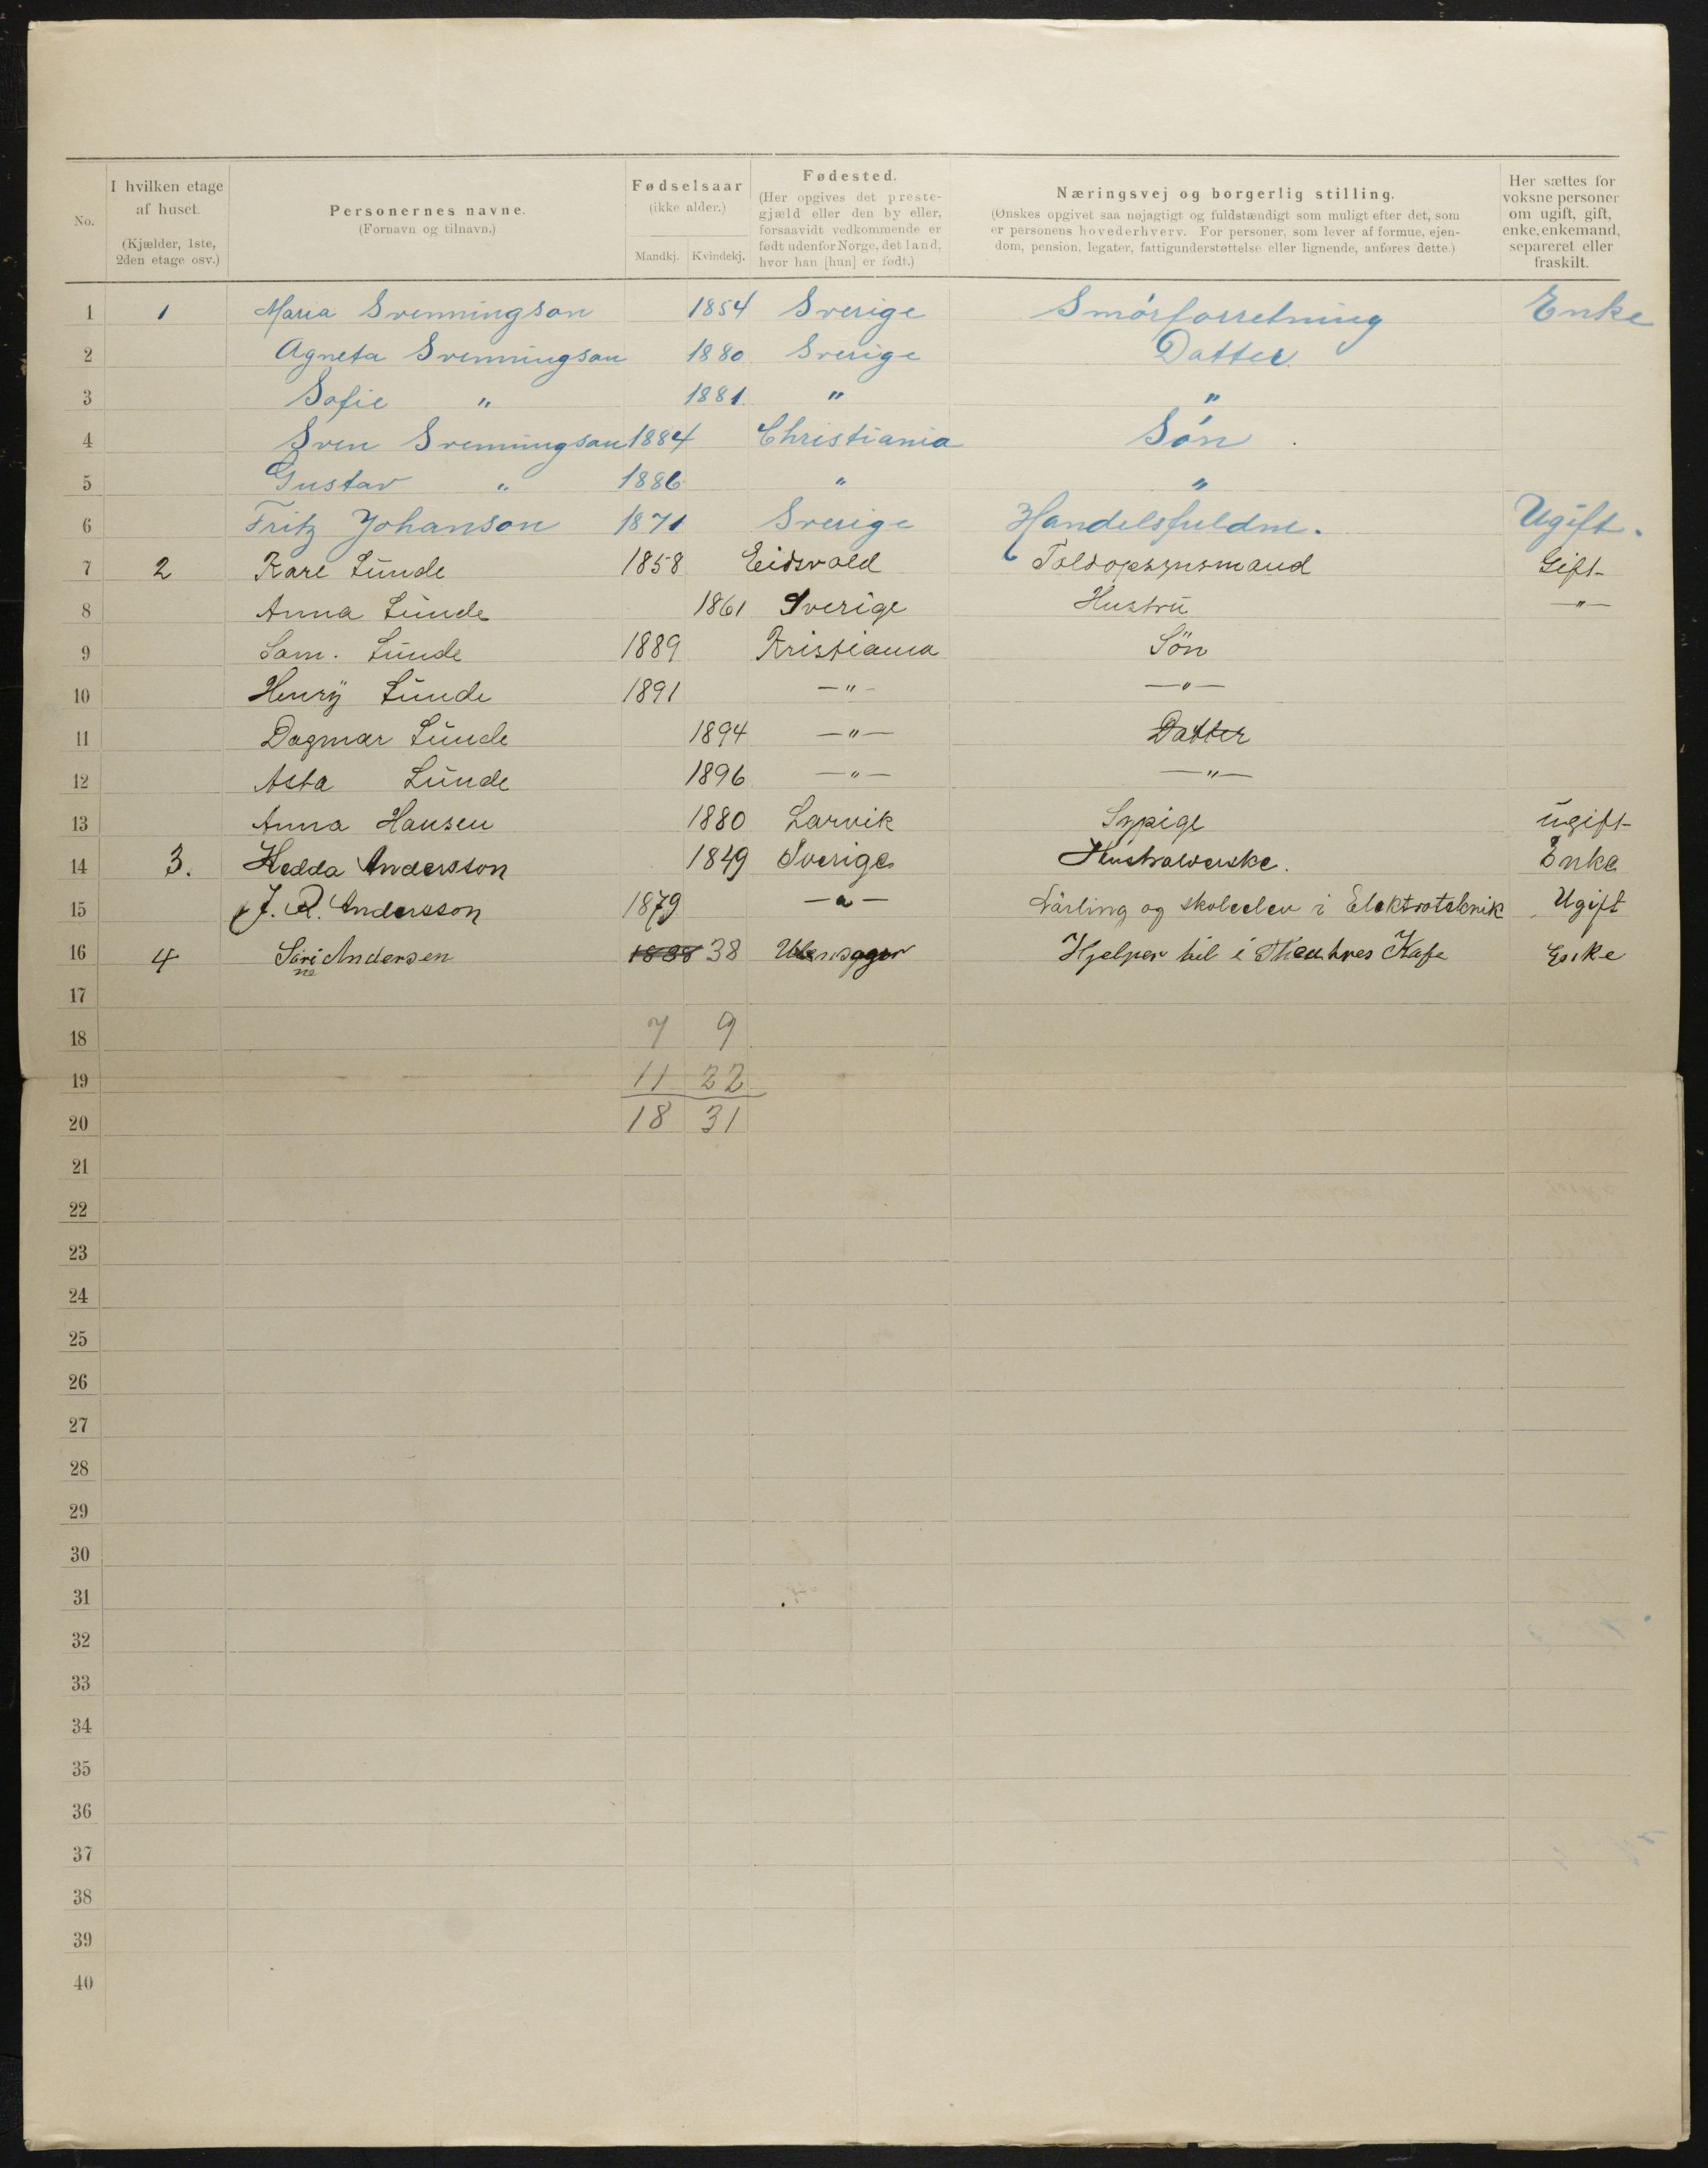 No.
I hvilken etage af huset.
(Kjælder, 1ste, 2den etage osv.)
Personernes navne.
(Fornavn og tilnavn.)
Fødselsaar
(ikke alder.)
Mandkj. Kvindekj.
Fødested.
(Her opgives det prestegjæld eller den by eller, forsaavidt vedkommende er født udenfor Norge, det land, hvor han [hun] er født.)
Næringsvej og borgerlig stilling.
(Ønskes opgivet saa nøjagtigt og fuldstændigt som muligt efter det, som er personens hovederhverv. For personer, som lever af formue, ejendom, pension, legater, fattigunderstøttelse eller lignende, anføres dette.)
Her sættes for voksne personer om ugift, gift, enke, enkemand, separeret eller fraskilt.
1 1 Maria Svenningson 1854 Sverige Smörforretning Enke
2 Agneta Svenningson 1880 Sverige Datter
3 Sofie " 1881 " "
4 Sven Svenningson 1884 Christiania Sön
5 Gustav " 1886 " "
6 Fritz Johanson 1871 Sverige Handelsfuldm. Ugift.
7 2 Karl Lunde 1858 Eidsvold Toldopsynsmand Gift
8 Anna Lunde 1861 Sverige Hustru —"—
9 Sam. Lunde 1889 Kristiania Sön
10 Henry Lunde 1891 —"— —"—
11 Dagmar Lunde 1894 —"— Datter
12 Asta Lunde 1896 —"— —"—
13 Anna Hansen 1880 Larvik Sypige ugift
14 3. Hedda Andersson 1849 Sverige Enke
15 J. R. Andersson 1879 —"— Lärling og skoleelev i Elektroteknik Ugift
16 4 Andersen 1838 38 Ullensager Hjelper til i Theatres Kafe Enke
17
18 7 9
19 11 22
20 18 31
21
22
23
24
25
26
27
28
29
30
31
32
33
34
35
36
37
38
39
40